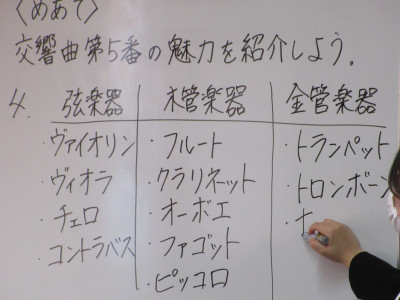 〈めあて〉
交響曲第5番の魅力を紹介しよう。
4. 弦楽器 木管楽器 金管楽器
・ヴァイオリン ・フルート ・トランペット
・ヴィオラ ・クラリネット ・トロンボーン
・チェロ ・オーボエ ・
・コントラバス ・ファゴット
・ピッコロ